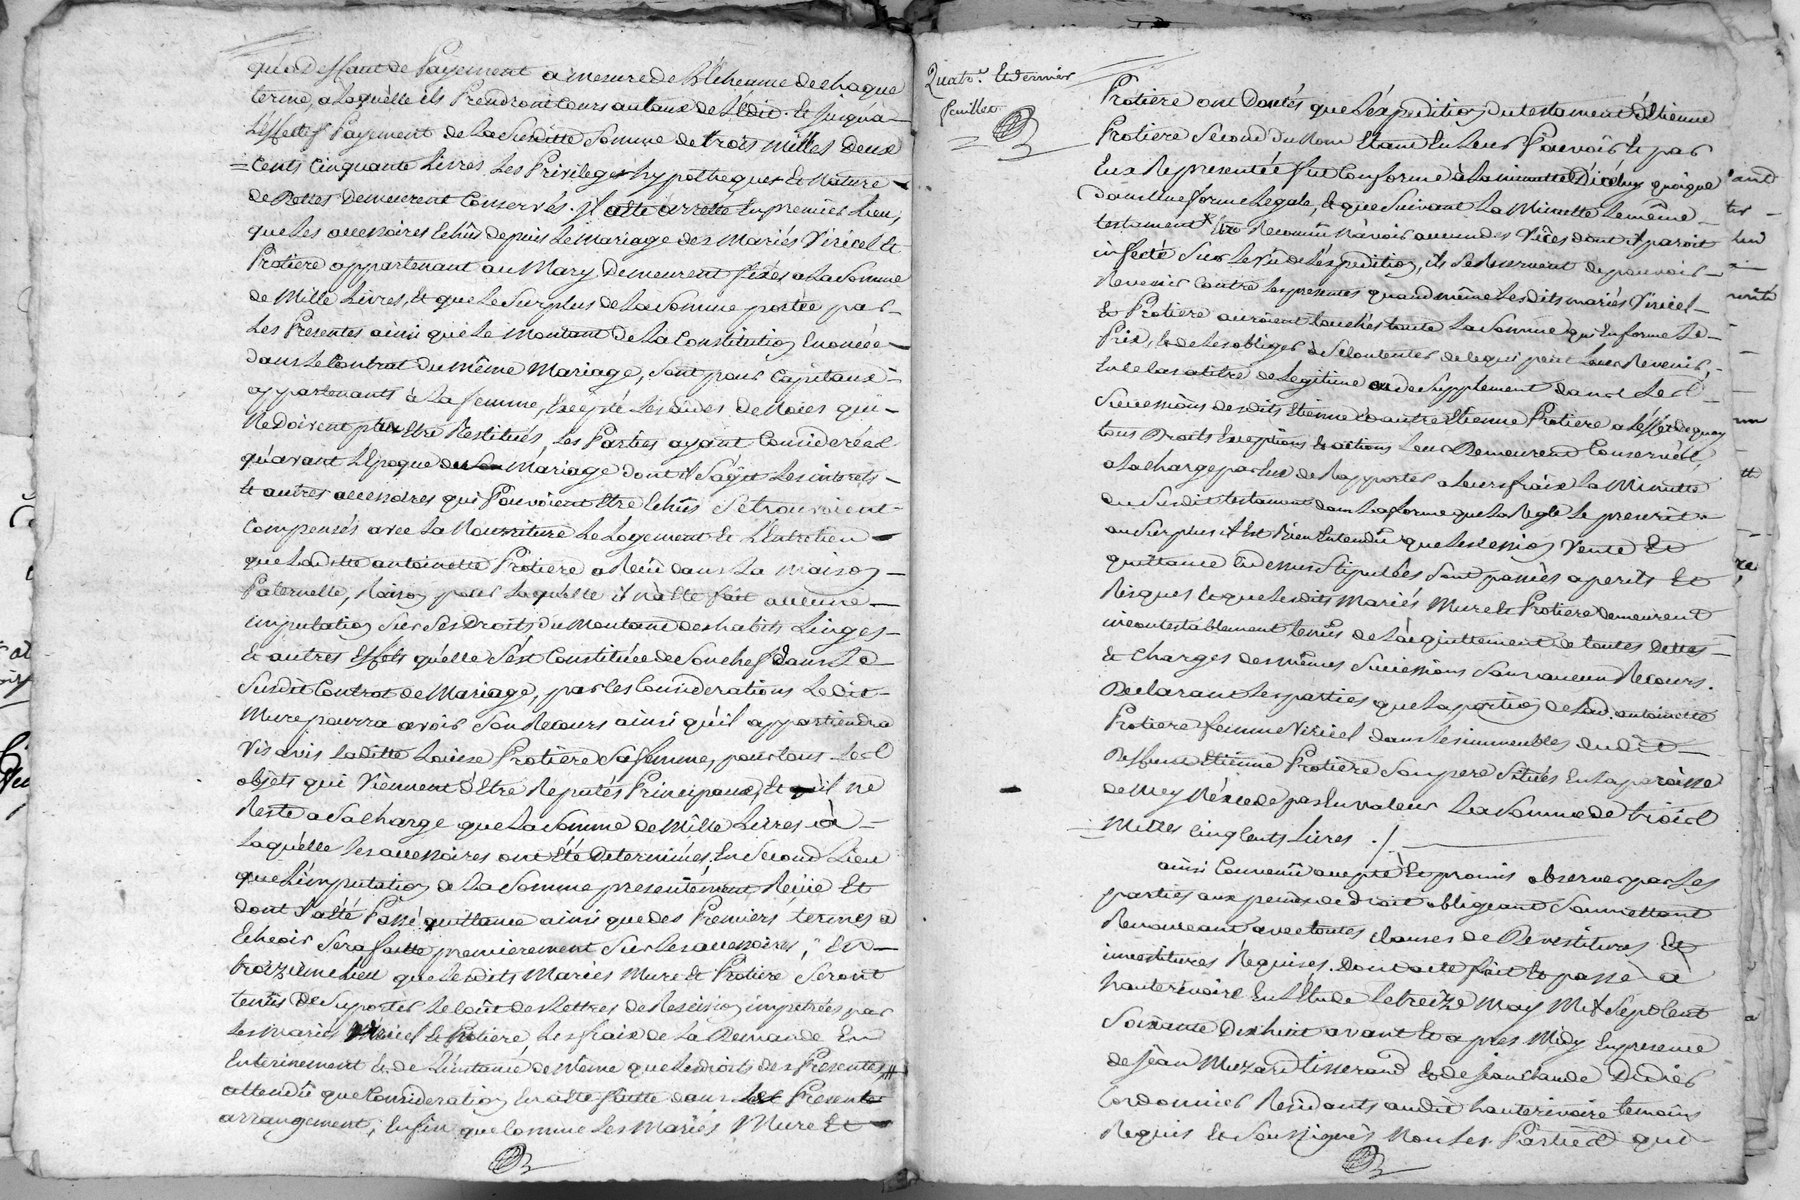 qu'a Deffaut de Payement a mesure de l'Echeanne de chaque
terme, a Laquelle ils Prendront Cours au taux de L'édit. Et jusqu'à
L'Effectif Payement de La Susditte Somme de trois Milles Deux
Cents Cinquante Livres, Les Privileges hypotheques Et Nature
de Dettes Demeurent Conservés. il a été arretté En premier Lieu,
que Les accessoires Echûs depuis Le Mariage des Mariés Viricel Et
Protiere appartenant au Mary Demeurent fixés a La Somme
de Mille Livres, Et que Le Surplus de La Somme portée par
Les Presentes ainsi que Le Montant de La Constitution Enoncée
dans Le Contrat du Même Mariage, sont pour Capitaux
appartenants à La femme, Excepté Les de Noces qui
Ne Doivent pas Etre Restitués, Les Parties ayant Consideré
qu'avant L'Epoque du Mariage dont il s'agit Les interets
Et autres accessoires qui Pouvoient Etre Echûs Se trouvoient
Compensés avec La Nourriture Le Logement Et L'Entretien
que Laditte antoinette Protiere a Reçu dans La Maison
Paternelle, Raison pour Laquelle il n'a été fait aucune
imputation Sur Ses Droits du Montant des habits Linges
Et autres Effets qu'elle s'est Constituée de Son chef Dans Le
Susdit Contrat de Mariage, par Ces Considerations Le dit
Mure pourra avoir Son Recours ainsi qu'il appartiendra
Vis avis Laditte Louise Protiere Sa femme, pour tous Les
objets qui Viennent d'Etre Reputés Principaux, Et qu'il ne
Reste a Sa charge que La Somme de Mille Livres à
Laquelle Les accessoires ont Eté Determinés, En Second Lieu
que L'imputation de La Somme presentement Reçue Et
dont a été Passé quittance ainsi que des Premiers termes a
Echeoir Sera faitte premierement Sur Les accessoires, En
troizieme Lieu que Lesdits Mariés Mure Et Protiere Seront
tenus De Suporter Le Coût des Lettres de Rescision impetrées par
Les Mariés Viricel Et Protiere, Les fraix de La Demande En
Enterinement Et de L'instance de même que Les droits des Presentes
attendû que Consideration En a été faitte dans Le Present
arrangement, Enfin que Comme Les Mariés Mure Et
Quatr.e Et dernier
feuillet
Protiere ont Doutés que L'Expedition du testament d'Etienne
Protiere Second du Nom Etant En Leur Pouvoir Et par
Eux Representée fut Conforme à La minutte D'icelui quoique
Dans Une forme Legale, Et que Suivant La Minutte Le même
testament Reconnu N'avoir aucun des Vices dont il paroit
infecté Sur Le Vû de L'Expedition, ils Se Reservent de pouvoir
Revenir Contre Les presentes quand même Lesdits mariés Viricel
Et Protiere auroient touchés toute La Somme qui En forme Le
Prix, Et de Les obliger à Se Contenter de Ce qui peut Leur Revenir,
En Ce Cas a titre de Legitime ou de Supplement dans Les
Successions desdits Etienne Et autre Etienne Protiere a L'Effet de quoy
tous Droits Exceptions Et actions Leur Demeurent Conservés,
a La charge par Eux de Rapporter a Leurs fraix La Minutte
du Susdit testament dans La forme que La Regle Le prescrit
au Surplus il Est Bien Entendu que Les Cession Vente Et
quittance Cy dessus Stipulées Sont passées a perils Et
Risques Et que Lesdits Mariés Mure Et Protiere demeurent
incontestablement tenus de L'acquittement de toutes Dettes
Et Charges des mêmes Successions Sans aucun Recours.
Declarant Les parties que La portion de Lad. antoinette
Protiere femme Viricel dans Les immeubles du dit
Deffunt Etienne Protiere Son pere Situés En La paroisse
de Mey N'Excede pas En Valeur La Somme de trois
Milles Cinq Cents Livres ./.
ainsi Convenu accepté Et promis observer par Les
parties aux peines de Droit obligeant Soumettant
Renonceant avec toutes Clauses de Devestitures Et
investitures Requises. Dont acte fait Et passé à
hauterivoire En L'Etude Le treize May Mil Sept Cent
Soixante Dix huit avant Et a pres Midy En presence
de Jean Muzard tisserand Et de Jean Claude Didier
Cordonnier Residants audit hauterivoire temoins
Requis Et Soussignés Non Les Parties qui